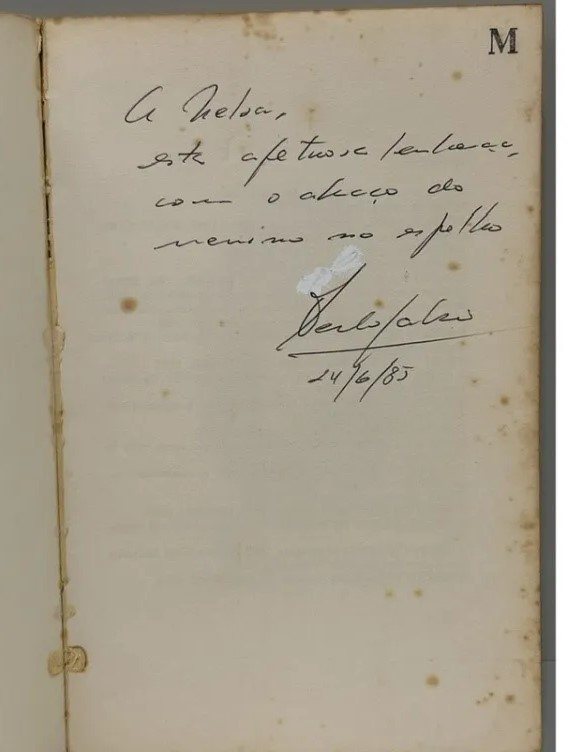 M
A Nelva,
esta afetuosa lembrança,
com o abraço do
menino no espelho
24/6/85